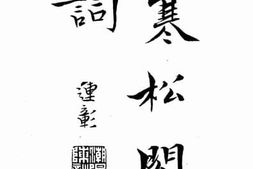 寒松閣
詞
運彰